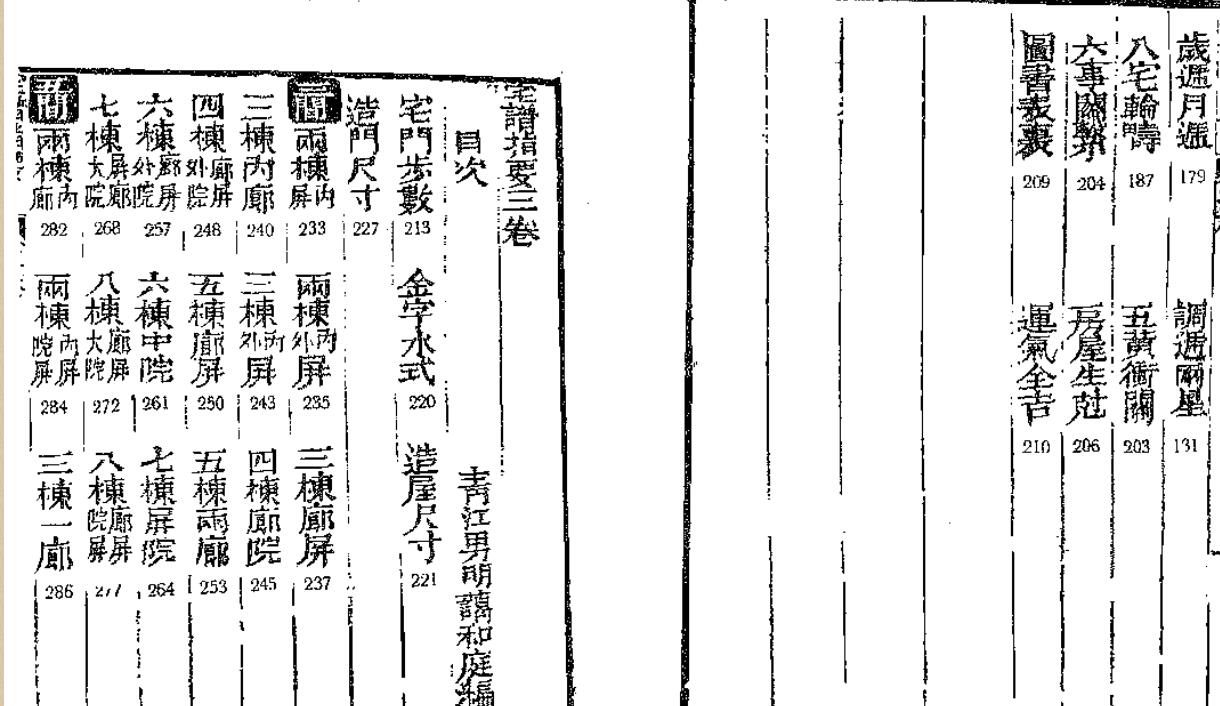 歲遁月遁 179 調遁兩星 131
八宅輪疇 187 五黃衝關 203
六事關繫 204 房屋生尅 206
圖書表裏 209 運氣全吉 210
宅譜指要三卷
目次 青江男明藹和庭編
宅門步數 213 金字水式 220 造屋尺寸 221
造門尺寸 227
兩棟內屏 233 兩棟內外屏 235 三棟廊屏 237
三棟內廊 240 三棟內外屏 243 四棟廊院 245
四棟廊屏外院 248 五棟廊屏 250 五棟兩廊 253
六棟廊屏外院 257 六棟中院 261 七棟屏院 264
七棟屏廊大院 268 八棟廊屏大院 272 八棟廊屏院屏 277
商 兩棟內廊 282 兩棟內屏院屏 284 三棟一廊 286